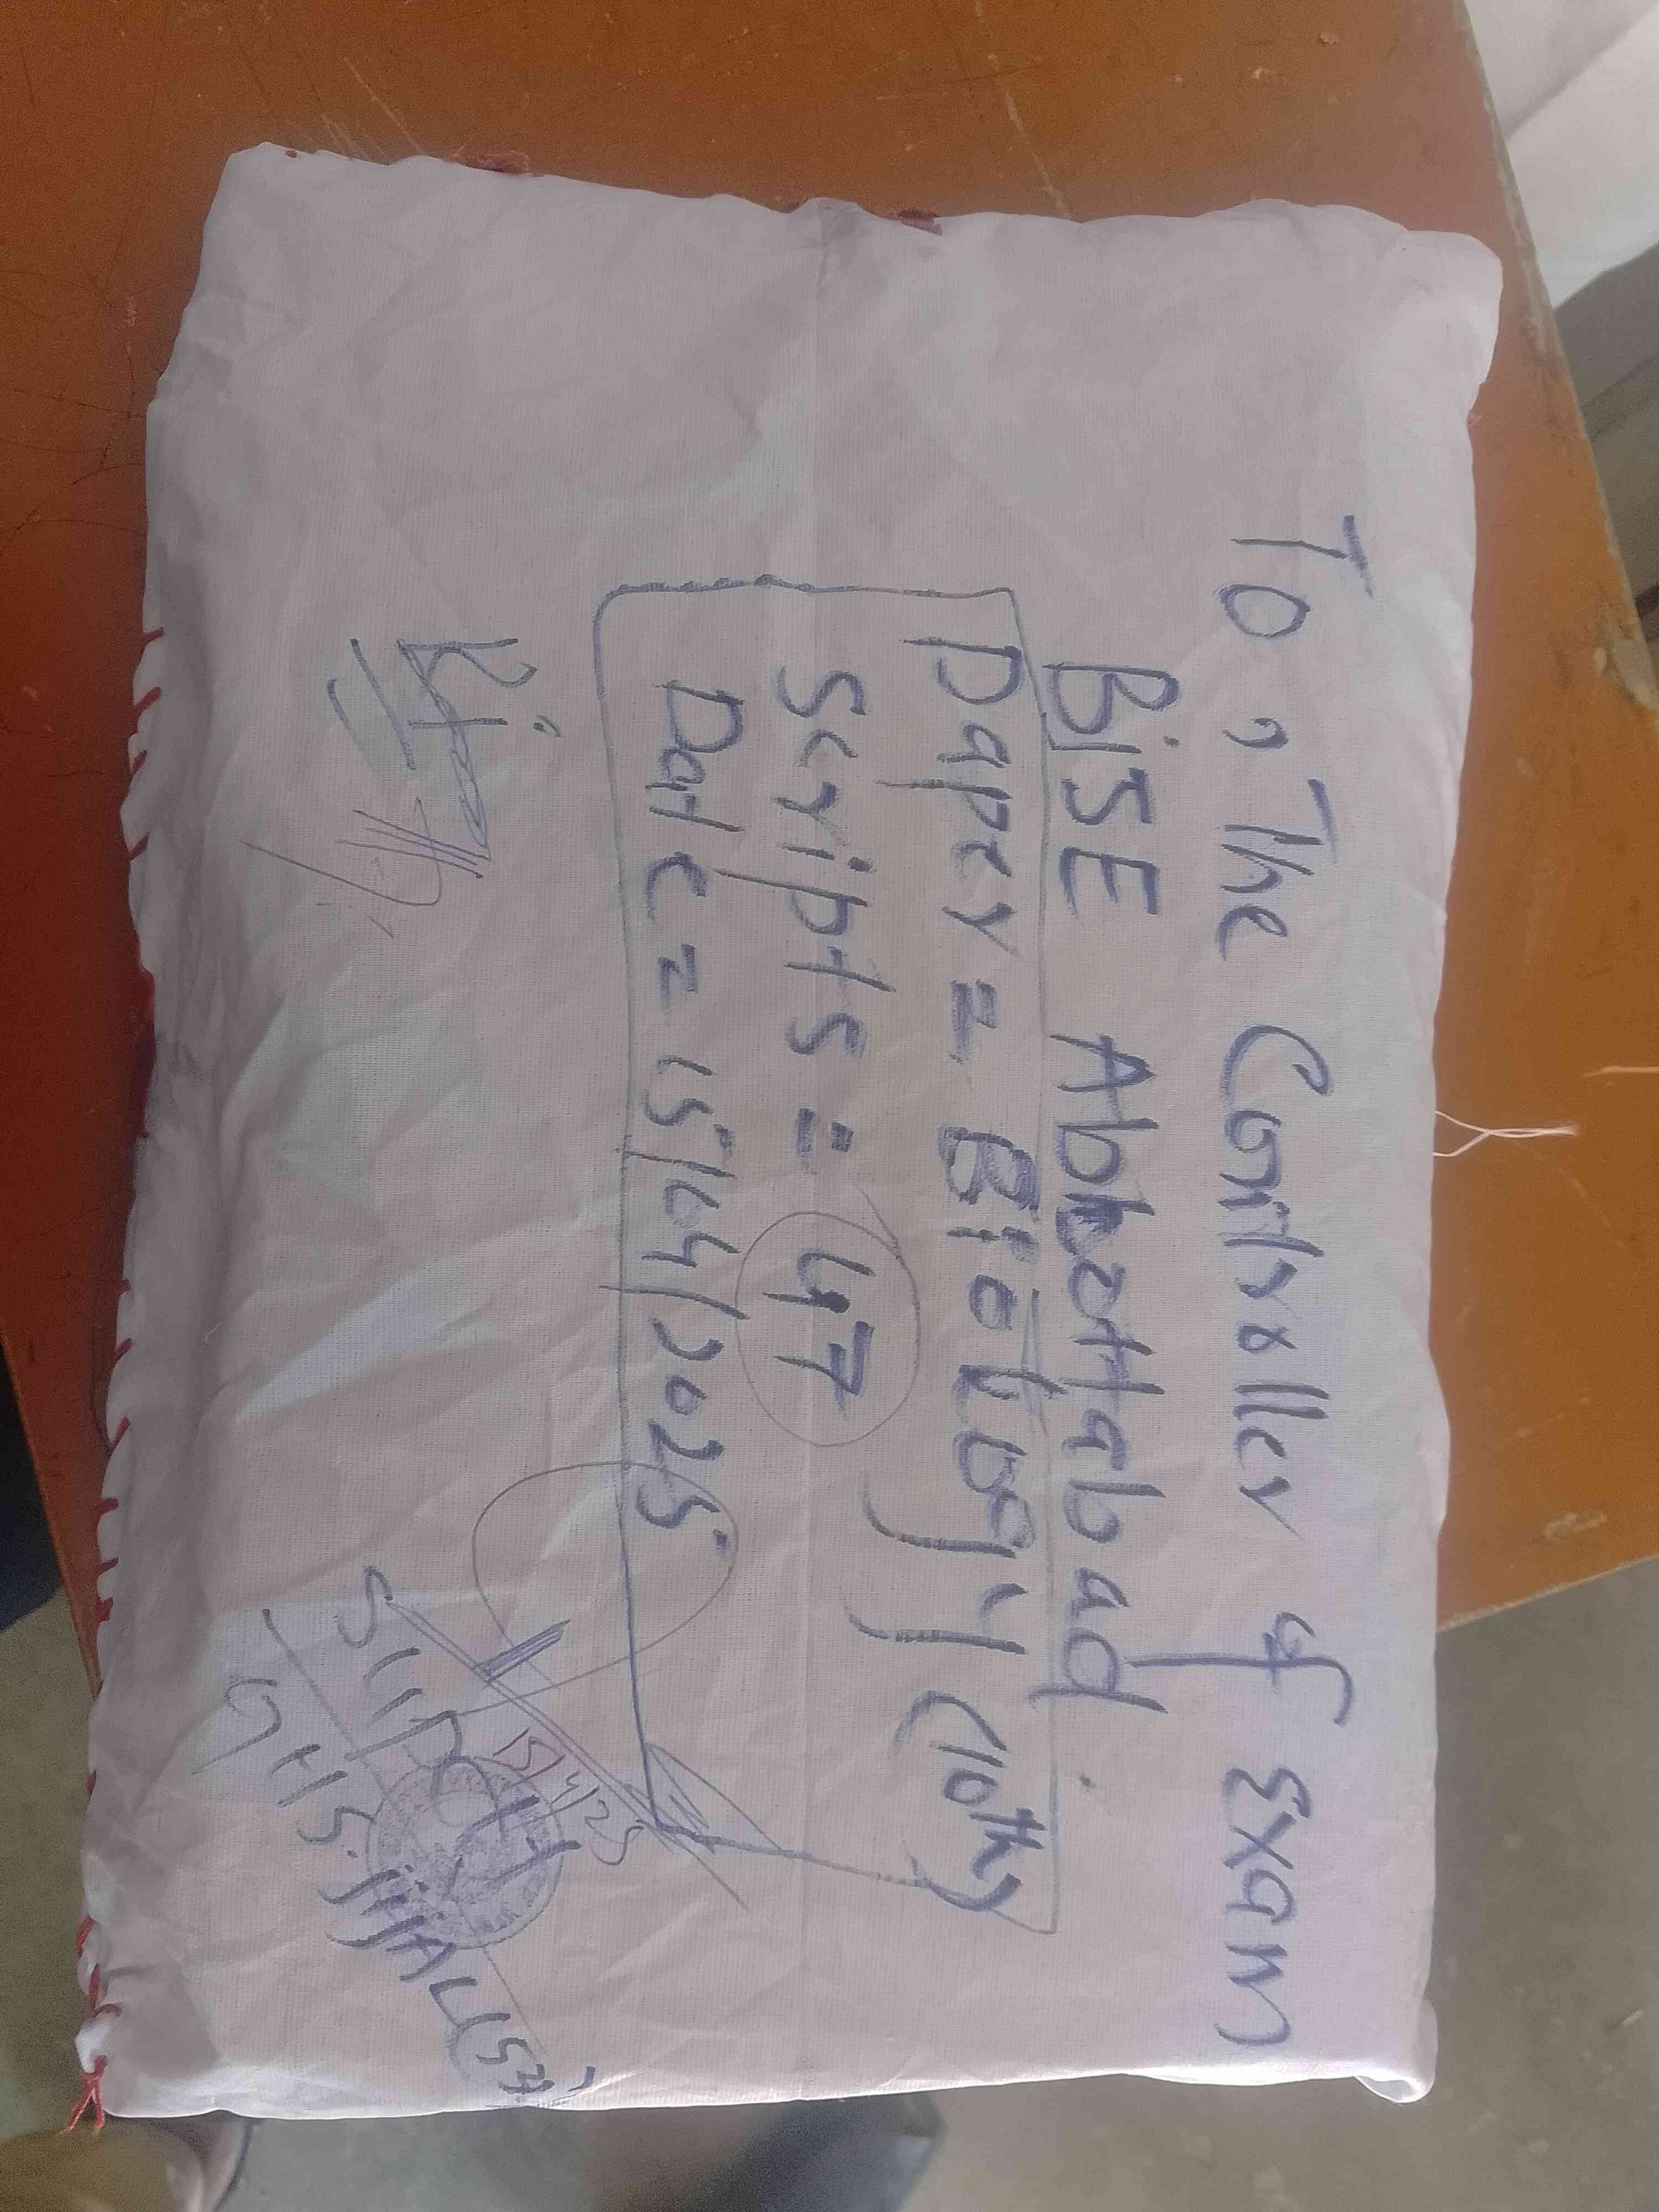 To, The Controller of Exam
BiSE Abbottabad.
Paper = Biology (10th)
Scripts = 47
Date = 15/04/2025
15/4/25
Supdt
GHS.